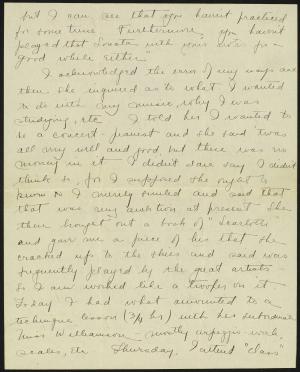 but I can see that you haven't practiced
for some time. Furthermore, you haven't
played that Sonata with your sister for a
good while either."
I acknowledged the error of my ways and
then she inquired as to what I wanted
to do with my music, why I was
studying, etc. I told her I wanted to
be a concert-pianist and she said 'twas
all very well and good, but there was no
money in it. I didn't dare say I didn't
think so, for I supposed she ought to
know so I merely smiled and said that
that was my ambition at present. She
then brought out a book of "Scarlotti"
and gave me a piece of his that she
cracked up to the skies and said was
frequently played by the great artists -
so I am worked like a trooper on it.
Today I had what amounted to a
technique lesson (3/4 hr) with her subordinate
Miss Williamson - mostly arpeggio work
scales, etc. Thursday, I attend "class"